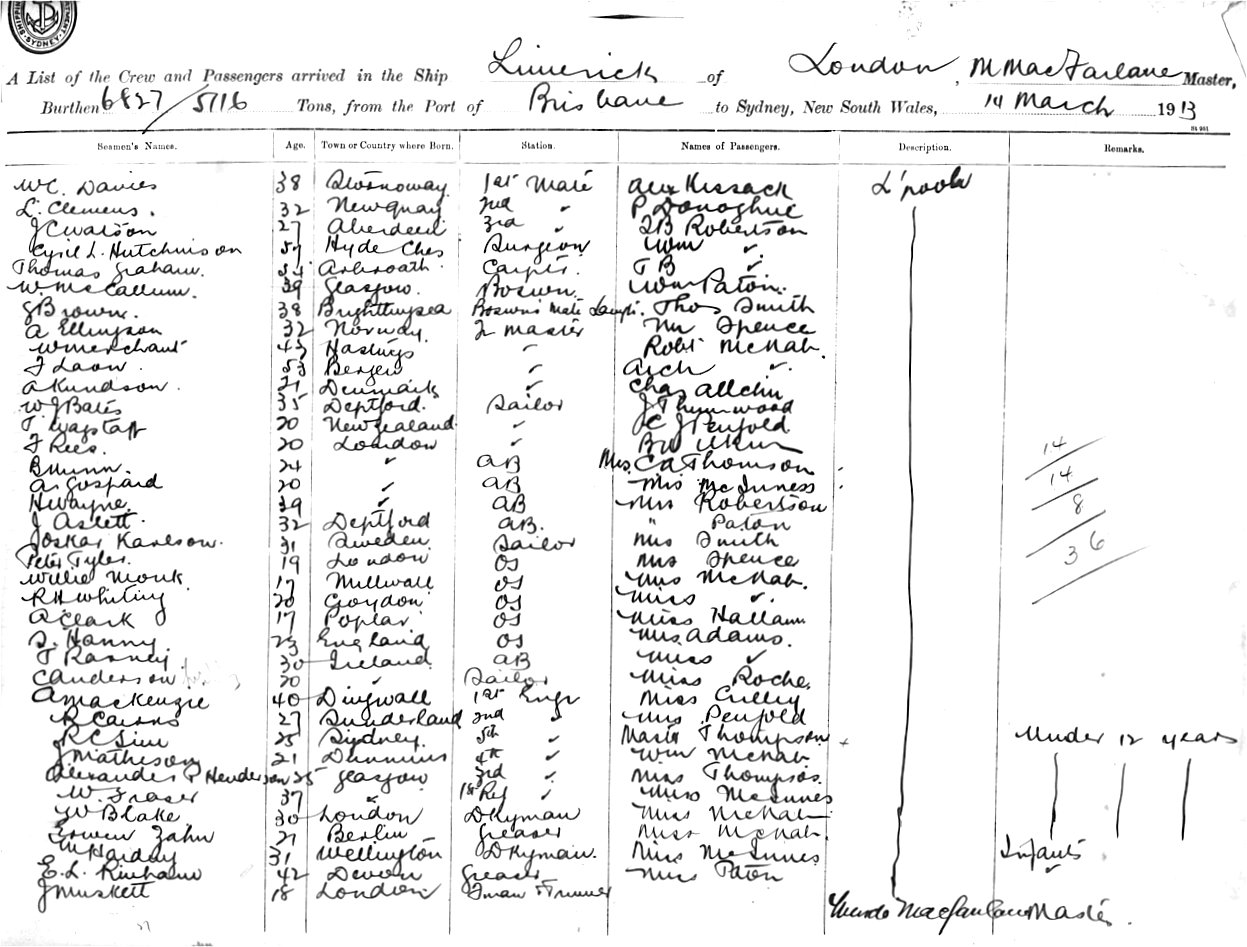 SHIPPING DEPARTMENT SYDNEY
A List of the Crew and Passengers arrived in the Ship Limerick of London, M MacFarlane Master,
Burthen 6827/5116 Tons, from the Port of Brisbane to Sydney, New South Wales, 14 March 1913
Seamen's Names. Age. Town or Country where Born. Station. Names of Passengers. Description. Remarks.
W C. Davies 38 Stornoway 1st Mate Alex Kissack L'pool
L. Clemens. 32 Newquay 2nd ✓ P Donoghue
J C Watson 27 Aberdeen 3rd ✓ J B Robertson
Cyril L. Hutchinson 57 Hyde Ches Surgeon Wm ✓
Thomas Graham. 54 Arbroath. Carptr. T B ✓
W McCallum. 39 Glasgow. Boswn. Wm Paton.
J Brown. 38 Brightlingsea Boswns Mate Lamps. Thos Smith
A Ellingson 32 Norway. Q Master Wm Spence
W Merchant 45 Hastings ✓ Robt McNab.
F Laow. 53 Bergen ✓ Arch ✓.
A Kundson. 21 Denmark ✓ Chas Allchin
W J Bates 35 Deptford. Sailor J Thynnwood
T. Wagstaff 20 New Zealand. ✓ C J Penfold
F Rees. 20 London ✓ B
B Munn. 24 ✓ AB Mrs. C A Thomson 14
A Gospard 20 ✓ AB Mrs McInness 14
H Wayne. 39 ✓ AB Mrs Robertson 8
J Aslett. 32 Deptford AB. " Paton
Joskar Karlson. 31 Sweden. Sailor Mrs Smith 36
Peter Tyler. 19 London OS Mrs Spence
Willie Monk. 17 Millwall OS Mrs McNab.
R H Whiting 20 Croydon OS Miss ✓.
A Clark 17 Poplar OS Miss Hallam
S. Hanny 23 England OS Mrs Adams.
T Rasney. 30 Ireland. AB Miss ✓
C Anderson 20 ✓ Sailor Miss Roche,
A MacKenzie 40 Dingwall 1st Engr Miss Culley
R Cairns 27 Sunderland 2nd ✓ Mrs Penfold
R C Sim 25 Sydney. 5th ✓ Maria Thompson Under 12 years
J Matheson 21 4th ✓ Wm McNab
Alexander P Henderson 25 Glasgow 3rd ✓ Miss Thompson.
W. Fraser 37 ✓ 1st Ref ✓ Miss McInnes
W Blake 30 London DKyman Miss McNab
Erwin Zahn 21 Berlin Greaser Miss McNab.
31 Wellington DKyman. Miss McInnes Infants
E. L. 42 Devon Greaser Miss Paton ✓
J Muskett 18 London Fman & Trimmer
Murdo MacFarlane Master.